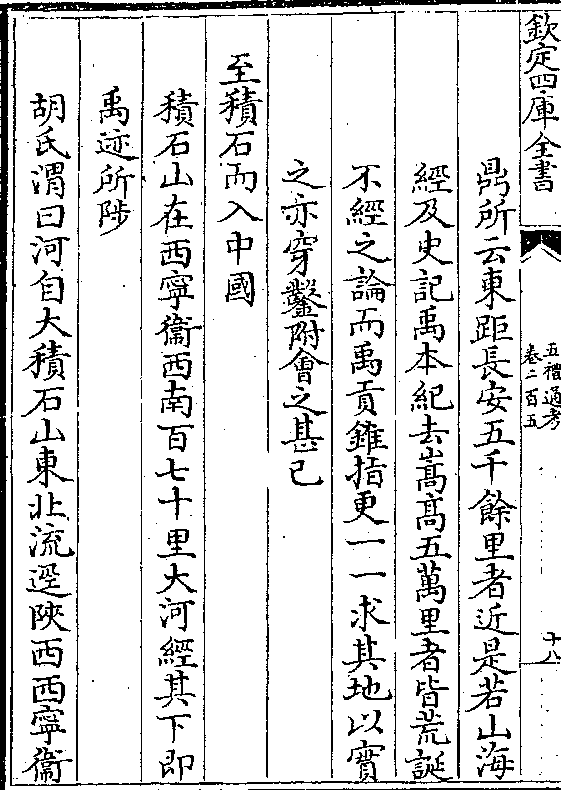 欽定四庫全書
五禮通考
卷二百五
十八
鼎所云東距長安五千餘里者近是若山海
經及史記禹本紀去嵩髙五萬里者皆荒誕
不經之論而禹貢錐指更一一求其地以實
之亦穿鑿附會之甚已
至積石而入中國
積石山在西寧衞西南百七十里大河經其下即
禹迹所陟
胡氏渭曰河自大積石山東北流逕陜西西寧衞